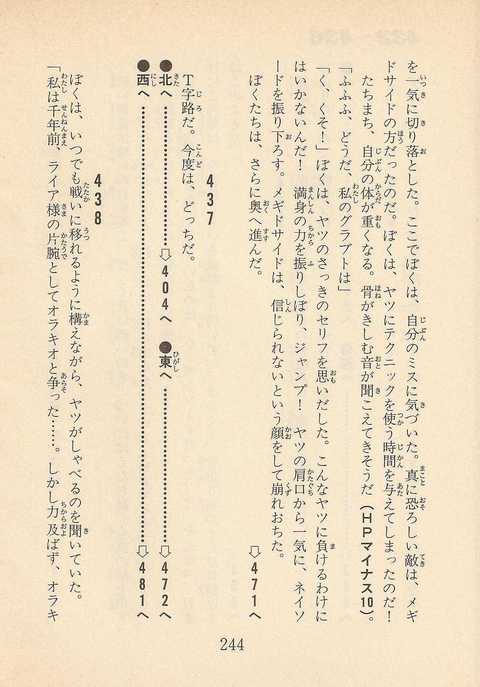 を一気に切り落とした。ここでぼくは、自分のミスに気づいた。真に恐ろしい敵は、メギ
ドサイドの方だったのだ。ぼくは、ヤツにテクニックを使う時間を与えてしまったのだ！
たちまち、自分の体が重くなる。骨がきしむ音が聞こえてきそうだ（ＨＰマイナス10）。
「ふふふ、どうだ、私のグラブトは」
「く、くそ！」ぼくは、ヤツのさっきのセリフを思いだした。こんなヤツに負けるわけに
はいかないんだ！　満身の力を振りしぼり、ジャンプ！　ヤツの肩口から一気に、ネイソ
ードを振り下ろす。メギドサイドは、信じられないという顔をして崩れおちた。
ぼくたちは、さらに奥へ進んだ。
⇨471へ
437
T字路だ。今度は、どっちだ。
●北へ……………⇨404へ　●東へ……………⇨472へ
●西へ……………⇨481へ
438
ぼくは、いつでも戦いに移れるように構えながら、ヤツがしゃべるのを聞いていた。
「私は千年前、ライア様の片腕としてオラキオと争った……。しかし力及ばず、オラキ
244